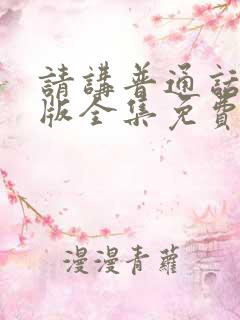 請講普通話
版全集免費
漫漫青蘿